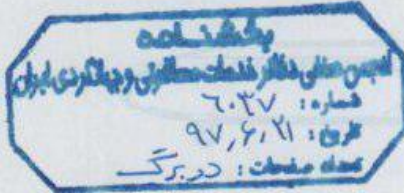 بخشنامه
انجمن صنفی دفاتر خدمات مسافرتی و جهانگردی ایران
شماره : ۶۰۳۷
تاریخ : ۹۷٫۶٫۲۱
تعداد صفحات : دو برگ